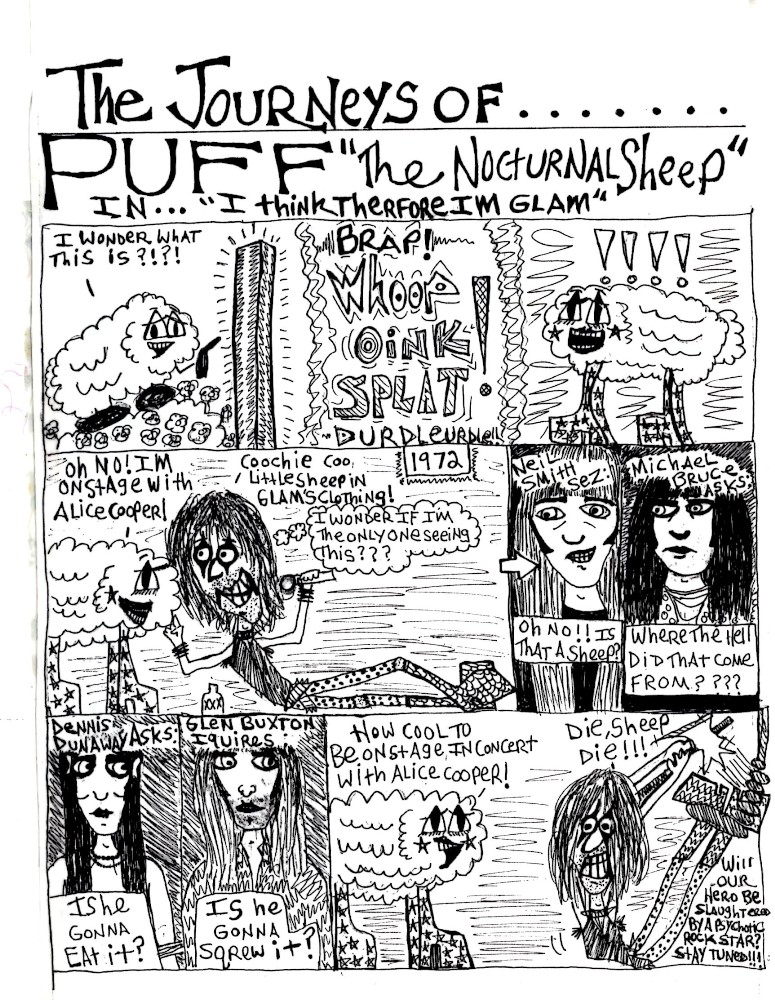 The JOURNEYS OF........
PUFF "The NOCTURNAL Sheep"
IN... "I thinkTherfore IM GLAM"
I WONDER WHAT
This is?!?!
BRAP!
Whoop
OiNK!
SPLAT
DURDLEURDLE!!
!!!!
Oh NO! IM
ONSTAGE WiTh
ALiCE COOPER!
COOCHiE COO,
LiTTLE SHEEP IN
GLAM'S CLOTHING!
1972
I WONDER IF I'M
The ONLY ONE SEEING
This???
NEIL
SMITH
SEZ:
Oh NO!! IS
THAT A Sheep?
MiCHAEL
BRUCE
ASKS:
Where The Hell
DiD THAT COME
FROM????
DENNIS
DUNAWAY ASKS:
IS he
GONNA
EAT iT?
GLEN BUXTON
IQUIRES:
IS he
GONNA
SQREW iT?
HOW COOL TO
BE ONSTAGE IN CONCERT
WiTH ALiCE COOPER!
DiE, Sheep
DiE!!!
Will
OUR
HERO BE
SLAUGHTERED
BY A PSYCHOTIC
ROCK STAR?
STAY TUNED!!!
XXX